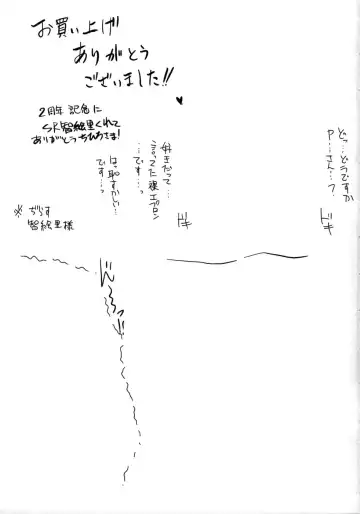 お買い上げ
ありがとう
ございました!!
2周年記念に
SR智絵里くれて
ありがとうちひろさま!
どっ…どうですか
P…さん…?
ドキ
好きだって…
言ってた裸エプロン
…です…っ
ドキ
は、恥ずかしい…
です…っ
※
智絵里様